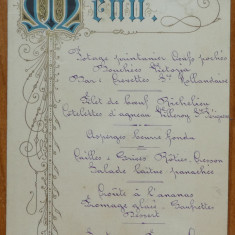 Menu.
Potage printanier Œufs pochés
Bouchées
Bar & Crevettes Sce Hollandaise
Filet de bœuf Richelieu
Côtelettes d'agneau Villeroy
Asperges beurre fondu
Cailles & Grives Rôties Cresson
Salade laitue panachée
Croûte à l'ananas
Fromage glacé Gaufrettes
Dessert